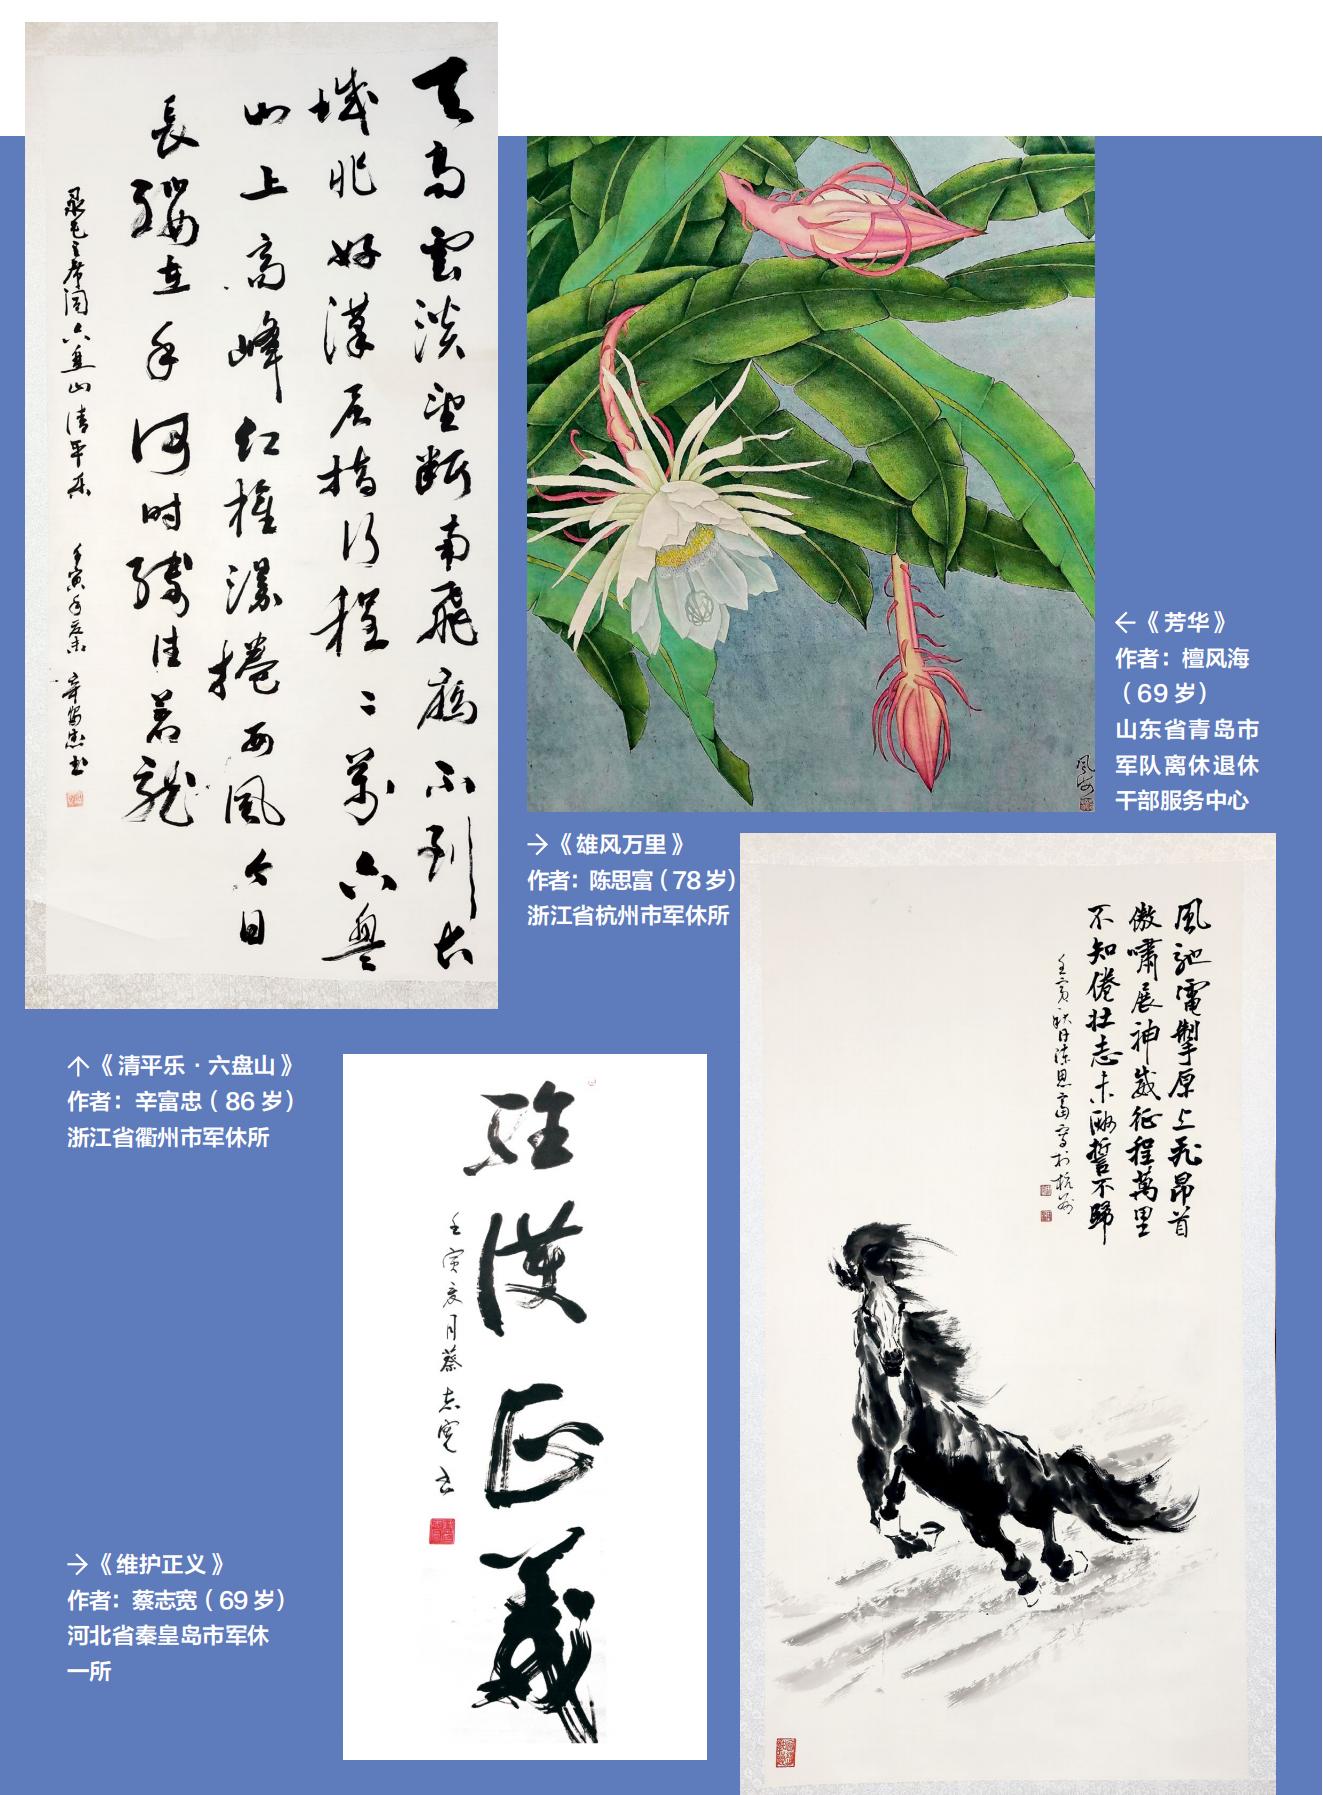 天高雲淡望断南飛雁不到长
城非好漢屈指行程二萬六盘
山上高峰红旗漫捲西風今日
長缨在手何时缚住苍龍
录毛主席词六盘山清平乐 壬寅年 辛富忠书
風海
←《芳华》
作者：檀风海
（69岁）
山东省青岛市
军队离休退休
干部服务中心
→《雄风万里》
作者：陈思富（78岁）
浙江省杭州市军休所
風馳電掣原上飛昂首
傲嘯展神威征程萬里
不知倦壮志未酬誓不歸
壬寅秋日陈思富寫於杭州
↑《清平乐·六盘山》
作者：辛富忠（86岁）
浙江省衢州市军休所
维護正義
壬寅亥月蔡志宽书
→《维护正义》
作者：蔡志宽（69岁）
河北省秦皇岛市军休
一所